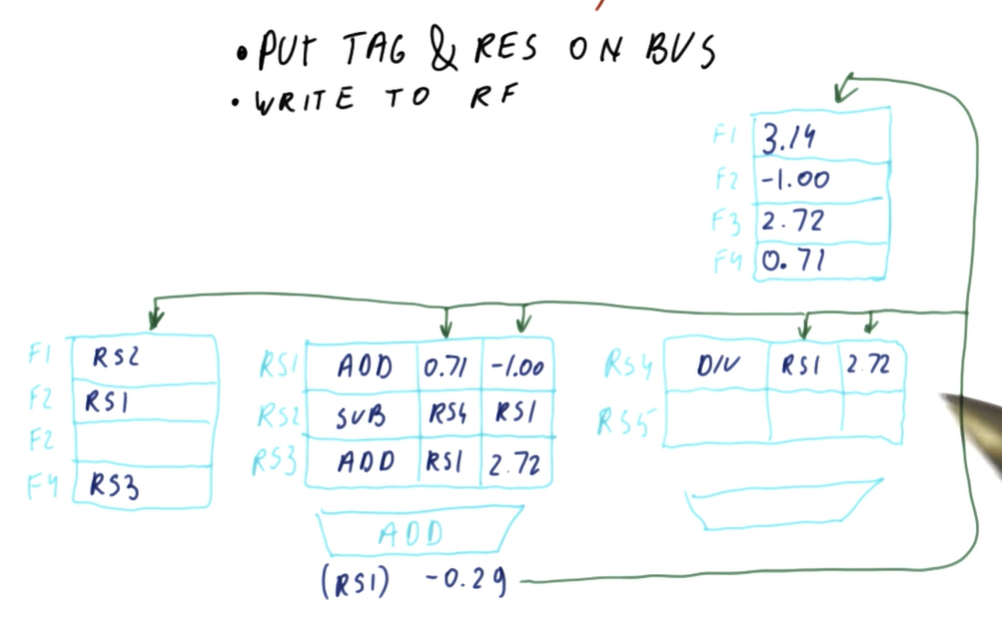 • PUT TAG & RES ON BUS
• WRITE TO RF
F1 3.14
F2 -1.00
F3 2.72
F4 0.71
F1 RS2
F2 RS1
F2
F4 RS3
RS1 ADD 0.71 -1.00
RS2 SUB RS4 RS1
RS3 ADD RS1 2.72
RS4 DIV RS1 2.72
RS5
ADD
(RS1) -0.29